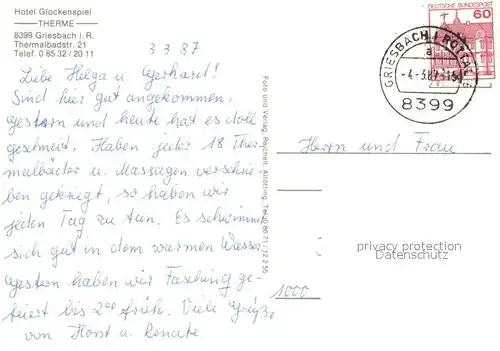 Hotel Glockenspiel
THERME
8399 Griesbach i. R.
Thermalbadstr. 21
Telef. 0 85 32 / 20 11
3 3 87
Liebe Helga u Gerhard!
Sind hier gut angekommen,
gestern und heute hat es doll
geschneit. Haben jeder 18 Ther
malbäder u. Massagen verschrie
ben gekriegt, so haben wir
jeden Tag zu tun. Es schwimmt
sich gut in dem warmen Wasser
Gestern haben wir Fasching ge-
feiert bis 2 00 früh. Viele Grüße
von Horst u. Renate
Foto und Verlag
Altötting, Telef.
DEUTSCHE BUNDESPOST
60
GRIESBACH I ROTTAL
a
-4.-3.87-15
8399
Herrn und Frau
privacy protection
Datenschutz
1000